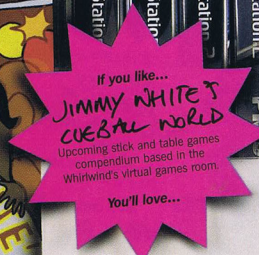 If you like...
JIMMY WHITE'S
CUEBALL WORLD
Upcoming stick and table games
compendium based in the
Whirlwind's virtual games room.
You'll love...